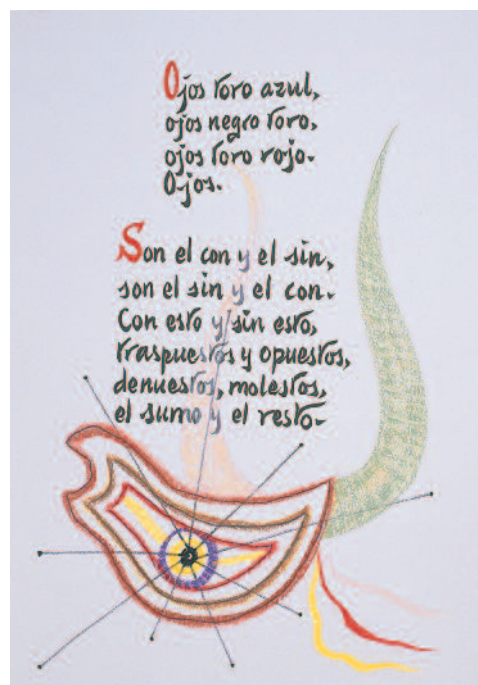 Ojos toro azul,
ojos negro toro,
ojos toro rojo.
Ojos.
Son el con y el sin,
son el sin y el con.
Con esto y sin esto,
traspuestos y opuestos,
denuestos, molestos,
el sumo y el resto.